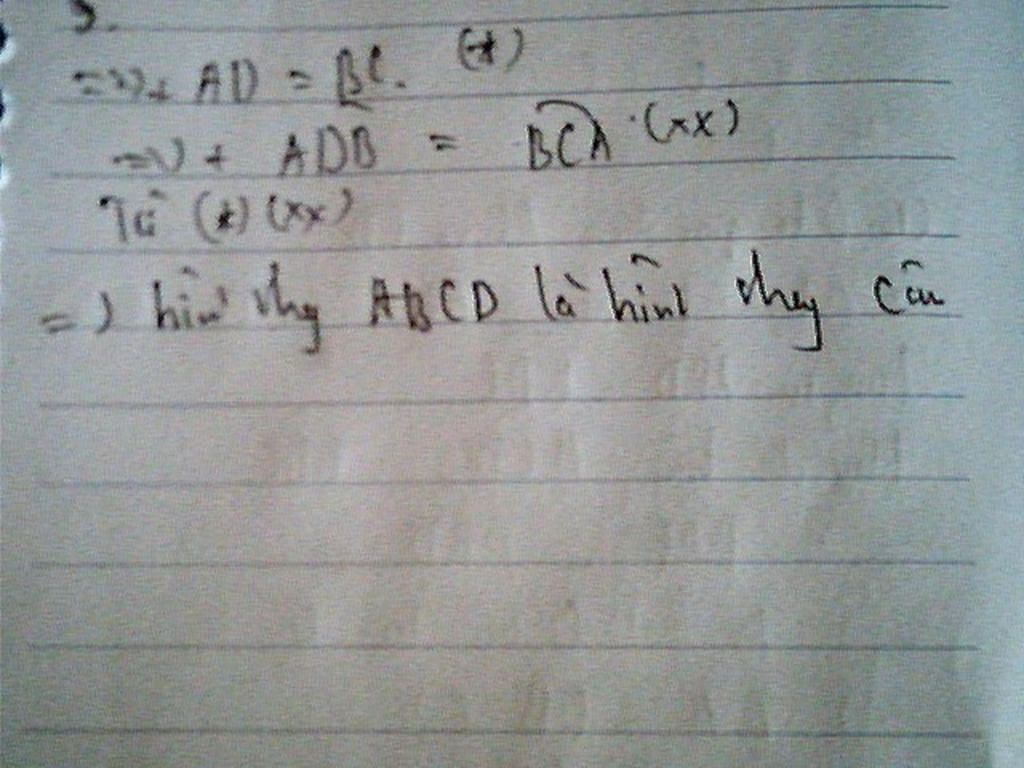 3.
=> + AD = BC. (*)
=> + ADB = BCA. (xx)
Từ (*) (xx)
=> hình thg ABCD là hình thg cân